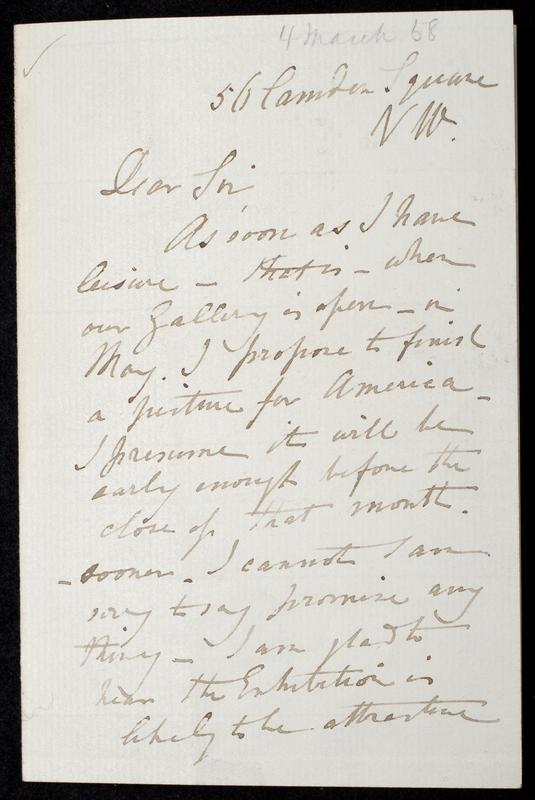 4 March 58
56 Camden Square
N W.
Dear Sir
As soon as I have
leisure – that is – when
our Gallery is open – in
May. I propose to finish
a picture for America –
I presume it will be
early enough before the
close of that month.
– sooner – I cannot I am
sorry to say promise any
thing – I am glad to
hear the Exhibition is
likely to be attractive